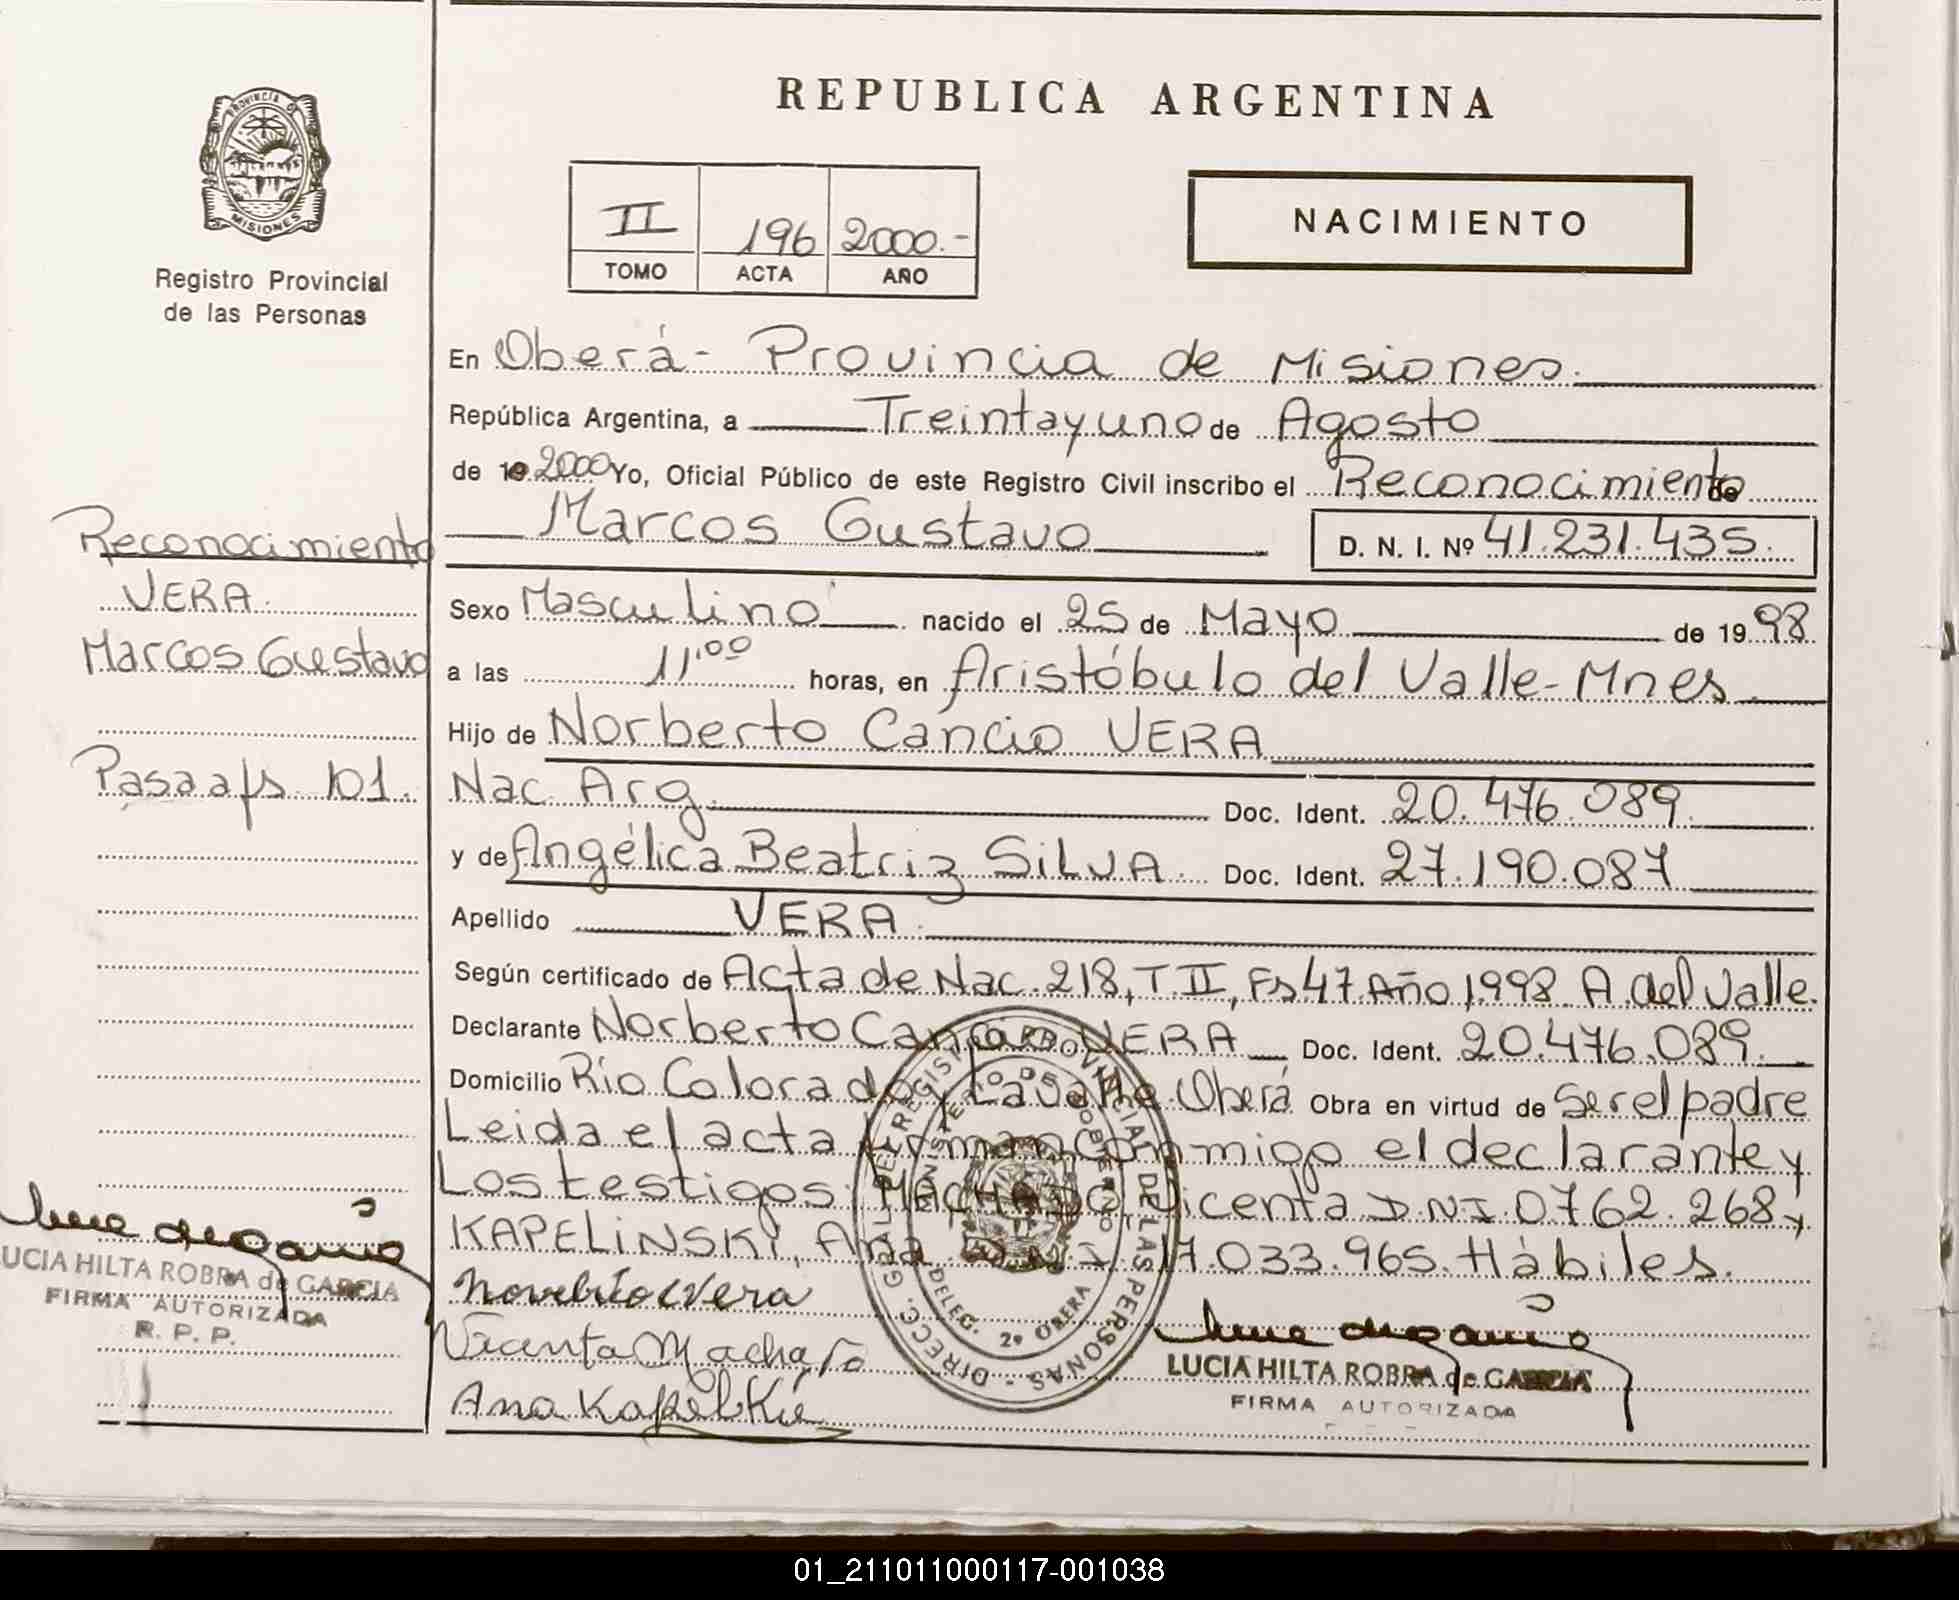 REPUBLICA ARGENTINA
PROVINCIA DE
MISIONES
Registro Provincial
de las Personas
II 196 2000.-
TOMO ACTA AÑO
NACIMIENTO
En Oberá- Provincia de Misiones.
República Argentina, a Treintayuno de Agosto
de 19 2000 Yo, Oficial Público de este Registro Civil inscribo el Reconocimiento de
Marcos Gustavo D. N. I. Nº 41.231.435.
Sexo Masculino nacido el 25 de Mayo de 1998
a las 11:00 horas, en Aristóbulo del Valle-Mnes.
Hijo de Norberto Cancio VERA
Nac. Arg. Doc. Ident. 20.476.089.
y de Angélica Beatriz SILVA. Doc. Ident. 27.190.087
Apellido VERA.
Según certificado de Acta de Nac. 218, T II, Fs 47 Año 1998 A. del Valle.
Declarante Norberto Cancio VERA Doc. Ident. 20.476.089.
Domicilio Río Colorado y Lavalle. Oberá Obra en virtud de Ser el padre
Leida el acta firman conmigo el declarante y
Los testigos: MACHADO, Vicenta D.N.I. 0762.268 y
KAPELINSKI, Ana D.N.I. 17.033.965. Hábiles.
Norberto c Vera
Vicenta Machado
Ana
LUCIA HILTA ROBRA de GARCIA
FIRMA AUTORIZADA
DIRECC. GRAL. DEL REGISTRO PROVINCIAL DE LAS PERSONAS -
MINISTERIO DE GOBIERNO
DELEG. 2ª OBERA
Reconocimiento
VERA.
Marcos Gustavo
Pasa a fs. 101.
LUCIA HILTA ROBRA de GARCIA
FIRMA AUTORIZADA
R. P. P.
01_211011000117-001038